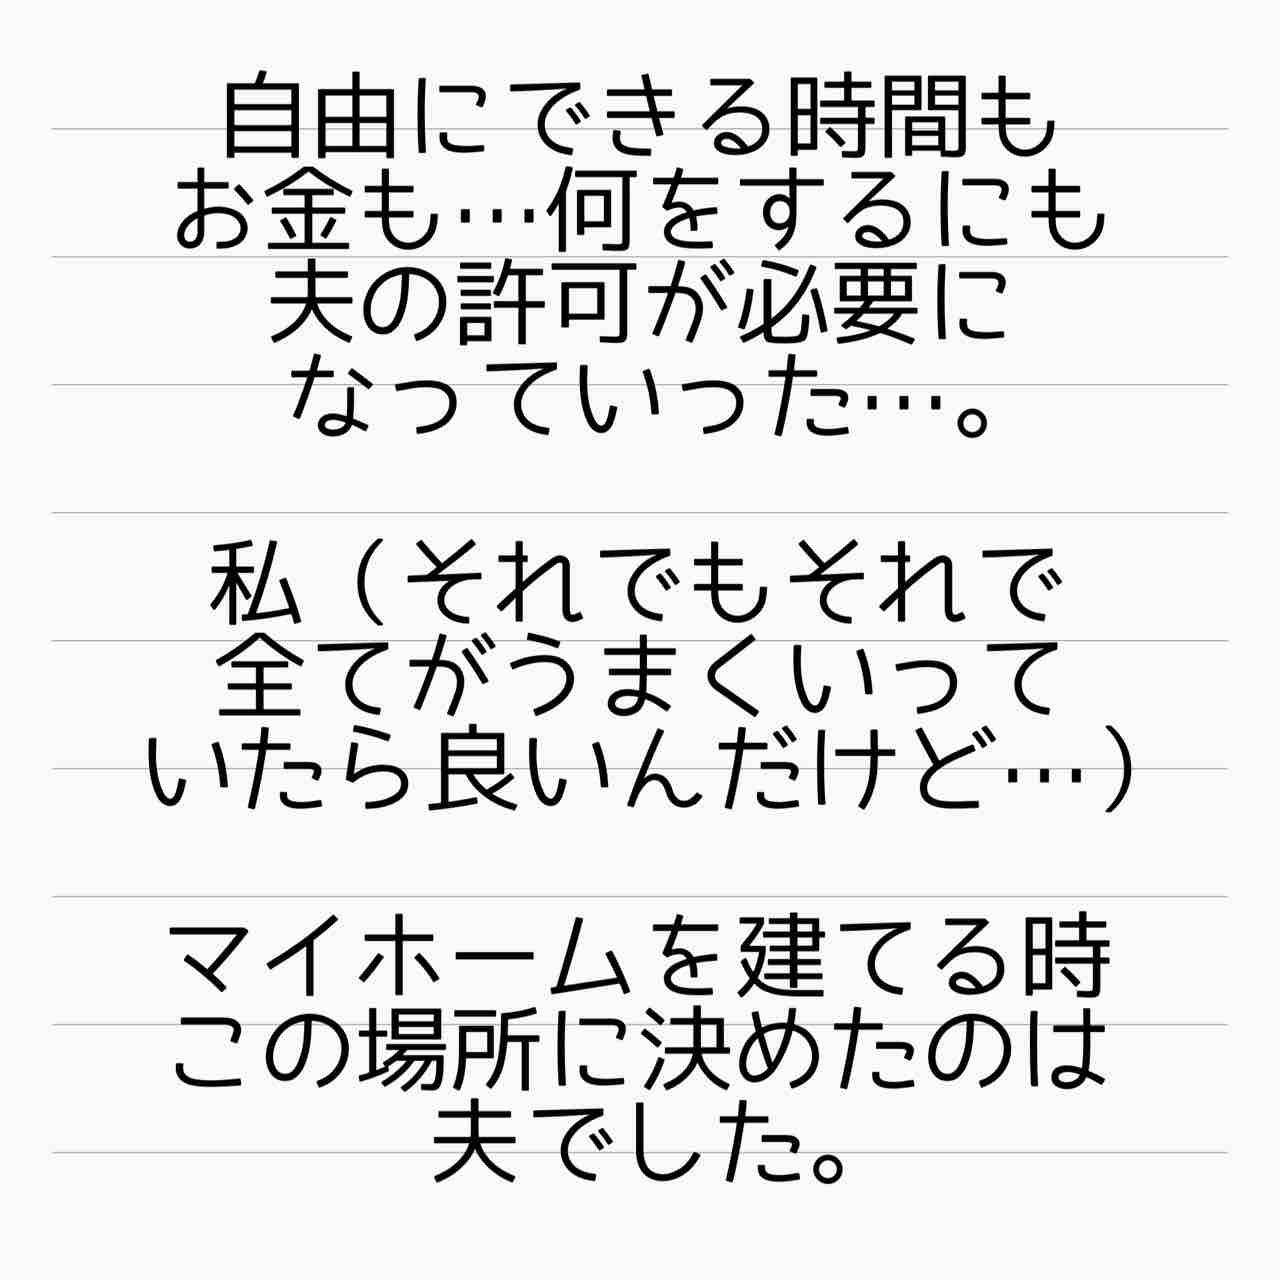 自由にできる時間も
お金も…何をするにも
夫の許可が必要に
なっていった…。
私（それでもそれで
全てがうまくいって
いたら良いんだけど…）
マイホームを建てる時
この場所に決めたのは
夫でした。